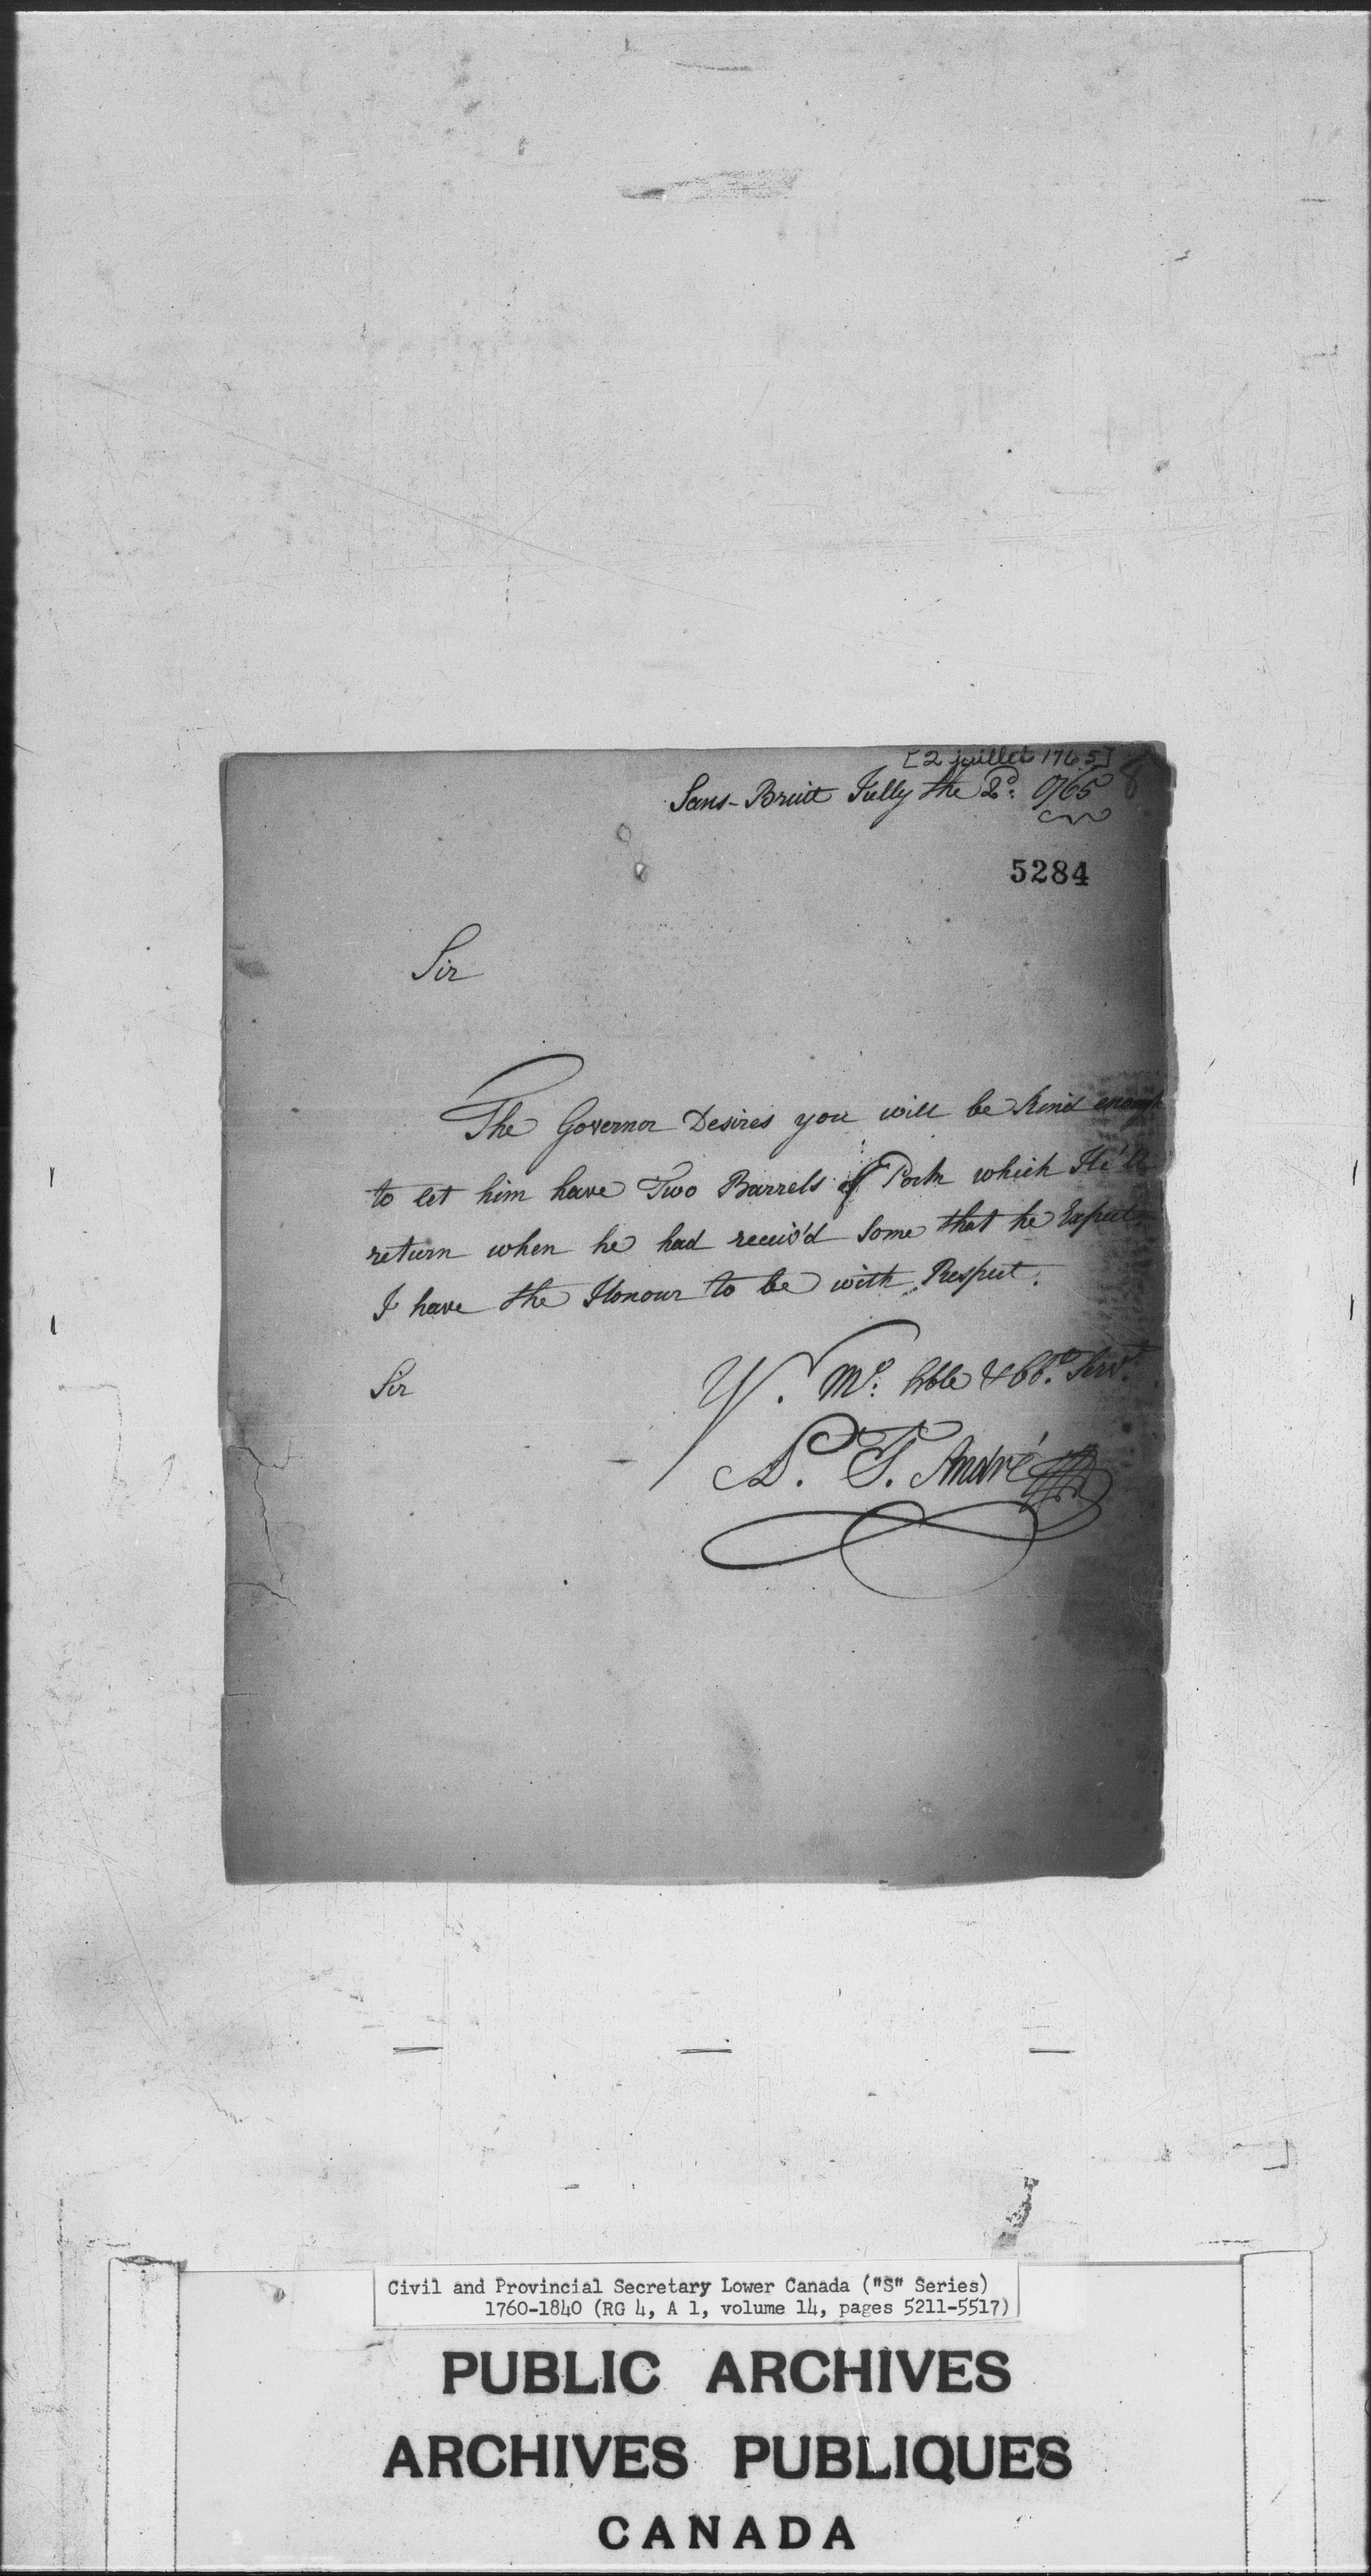 [2 juillet 1765]
Sans-Bruit Jully the 2d: 1765
8
5284
Sir
The Governor Desires you will be Kind enough
to let him have Two Barrels of Pork which He'll
return when he had receiv'd Some that he Expects
I have the Honour to be with Respect.
Sir
Y. Mt: hble & Obt. Servt.
D. T. André
Civil and Provincial Secretary Lower Canada ("S" Series)
1760-1840 (RG 4, A 1, volume 14, pages 5211-5517)
PUBLIC ARCHIVES
ARCHIVES PUBLIQUES
CANADA